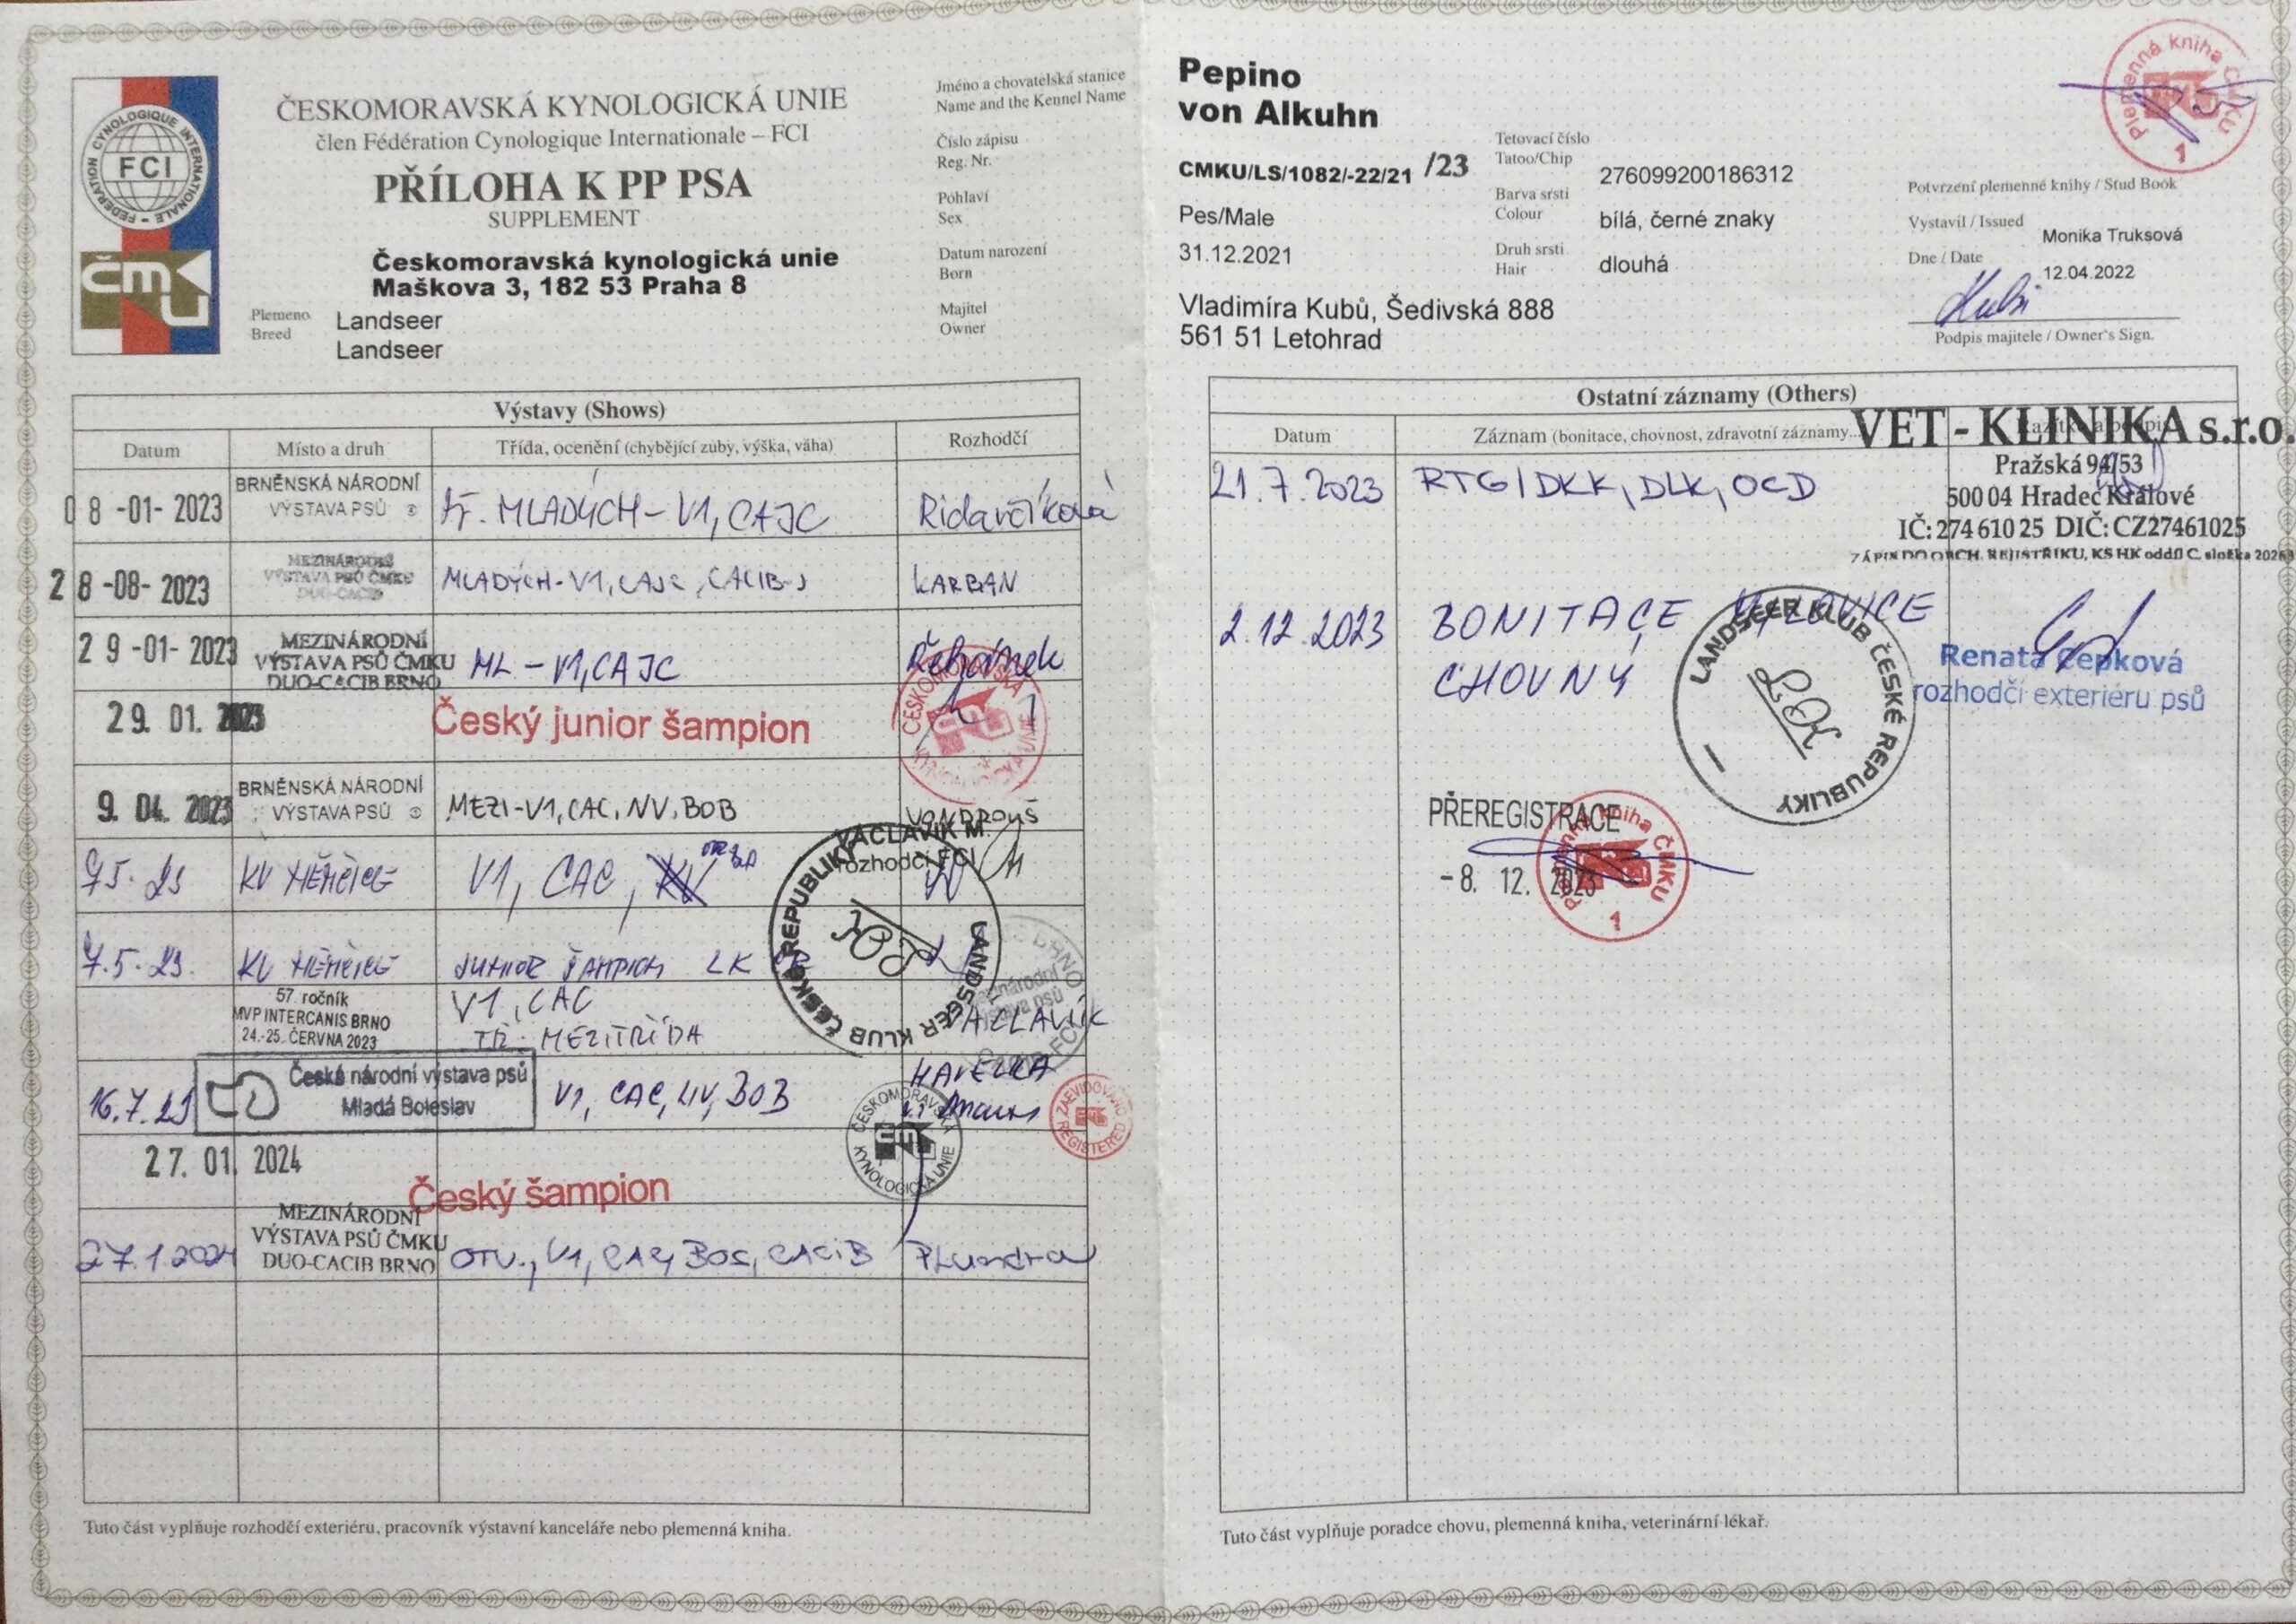 FÉDÉRATION CYNOLOGIQUE INTERNATIONALE
FCI
ČMKU
ČESKOMORAVSKÁ KYNOLOGICKÁ UNIE
člen Fédération Cynologique Internationale – FCI
PŘÍLOHA K PP PSA
SUPPLEMENT
Českomoravská kynologická unie
Maškova 3, 182 53 Praha 8
Plemeno Landseer
Breed Landseer
Jméno a chovatelská stanice
Name and the Kennel Name
Číslo zápisu
Reg. Nr.
Pohlaví
Sex
Datum narození
Born
Majitel
Owner
Výstavy (Shows)
Datum Místo a druh Třída, ocenění (chybějící zuby, výška, váha) Rozhodčí
08-01-2023 BRNĚNSKÁ NÁRODNÍ
VÝSTAVA PSŮ tř. MLADÝCH-V1, CAJC
28-08-2023 MEZINÁRODNÍ
VÝSTAVA PSŮ ČMKU
DUO-CACIB MLADÝCH-V1, CAJC, CACIB-J KARBAN
29-01-2023 MEZINÁRODNÍ
VÝSTAVA PSŮ ČMKU
DUO-CACIB BRNO ML-V1, CAJC Řehánek
29. 01. 2023 Český junior šampion
ČESKOMORAVSKÁ KYNOLOGICKÁ UNIE
9. 04. 2023 BRNĚNSKÁ NÁRODNÍ
VÝSTAVA PSŮ MEZI-V1, CAC, NV, BOB VONDROUŠ
VÁCLAVÍK M.
rozhodčí FCI
7.5.23 KV V1, CAC,
7.5.23. KV JUNIOR ŠAMPION LK ČR
LANDSEER KLUB ČESKÉ REPUBLIKY
57. ročník
MVP INTERCANIS BRNO
24.-25. ČERVNA 2023
V1, CAC
TŘ. MEZITŘÍDA VÁCLAVÍK
Mezinárodní
výstava psů
16.7.23 Česká národní výstava psů
Mladá Boleslav V1, CAC, NV, BOB HAVELKA
ČESKOMORAVSKÁ KYNOLOGICKÁ UNIE
ZAEVIDOVÁNO REGISTERED
27. 01. 2024 Český šampion
27.1.2024 MEZINÁRODNÍ
VÝSTAVA PSŮ ČMKU
DUO-CACIB BRNO OTV., V1, CAC, BOS, CACIB Plundra
Tuto část vyplňuje rozhodčí exteriéru, pracovník výstavní kanceláře nebo plemenná kniha.
Pepino
von Alkuhn
CMKU/LS/1082/-22/21 /23
Pes/Male
31.12.2021
Vladimíra Kubů, Šedivská 888
561 51 Letohrad
Tetovací číslo
Tatoo/Chip 276099200186312
Barva srsti
Colour bílá, černé znaky
Druh srsti
Hair dlouhá
Plemenná kniha ČMKU
1
Potvrzení plemenné knihy / Stud Book
Vystavil / Issued Monika Truksová
Dne / Date 12.04.2022
Podpis majitele / Owner's Sign.
Ostatní záznamy (Others)
Datum Záznam (bonitace, chovnost, zdravotní záznamy...
VET - KLINIKA s.r.o.
Pražská 94/53
500 04 Hradec Králové
IČ: 274 610 25 DIČ: CZ27461025
ZÁPIS DO OBCH. REJSTŘÍKU, KS HK oddíl C, složka
21.7.2023 RTG/DKK, DLK, OCD
2.12.2023 BONITACE MILOVICE
CHOVNÝ
LANDSEER KLUB ČESKÉ REPUBLIKY
Renata Čepková
rozhodčí exteriéru psů
PŘEREGISTRACE
-8. 12. 2023
Plemenná kniha ČMKU
1
Tuto část vyplňuje poradce chovu, plemenná kniha, veterinární lékař.